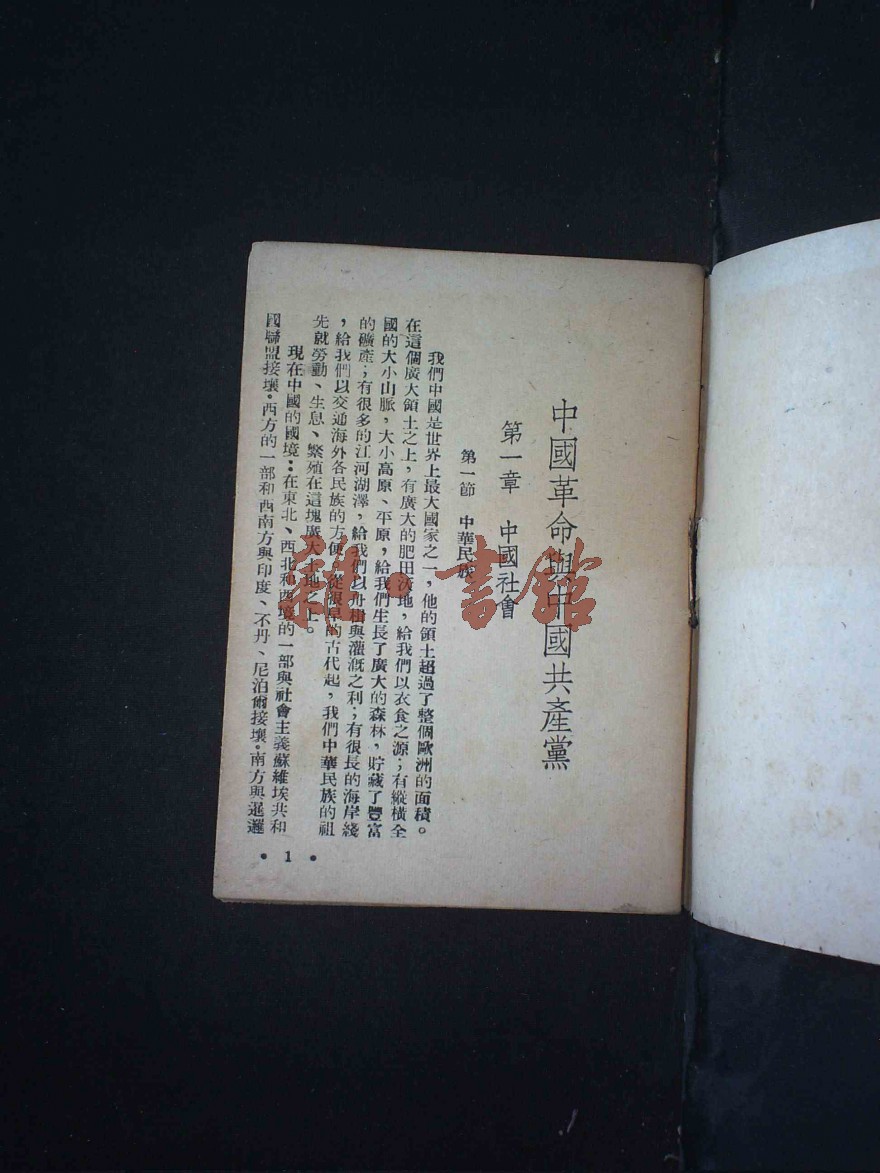 中國革命與中國共產黨
第一章 中國社會
第一節 中華民族
我們中國是世界上最大國家之一，他的領土超過了整個歐洲的面積。
在這個廣大領土之上，有廣大的肥田沃地，給我們以衣食之源；有縱橫全
國的大小山脈，大小高原、平原，給我們生長了廣大的森林，貯藏了豐富
的礦產；有很多的江河湖澤，給我們以舟楫與灌漑之利；有很長的海岸綫
，給我們以交通海外各民族的方便。從很早的古代起，我們中華民族的祖
先就勞動、生息、繁殖在這塊廣大土地之上。
現在中國的國境：在東北、西北和西境的一部與社會主義蘇維埃共和
國聯盟接壤。西方的一部和西南方與印度、不丹、尼泊爾接壤。南方與暹邏
• 1 •
雜·書館